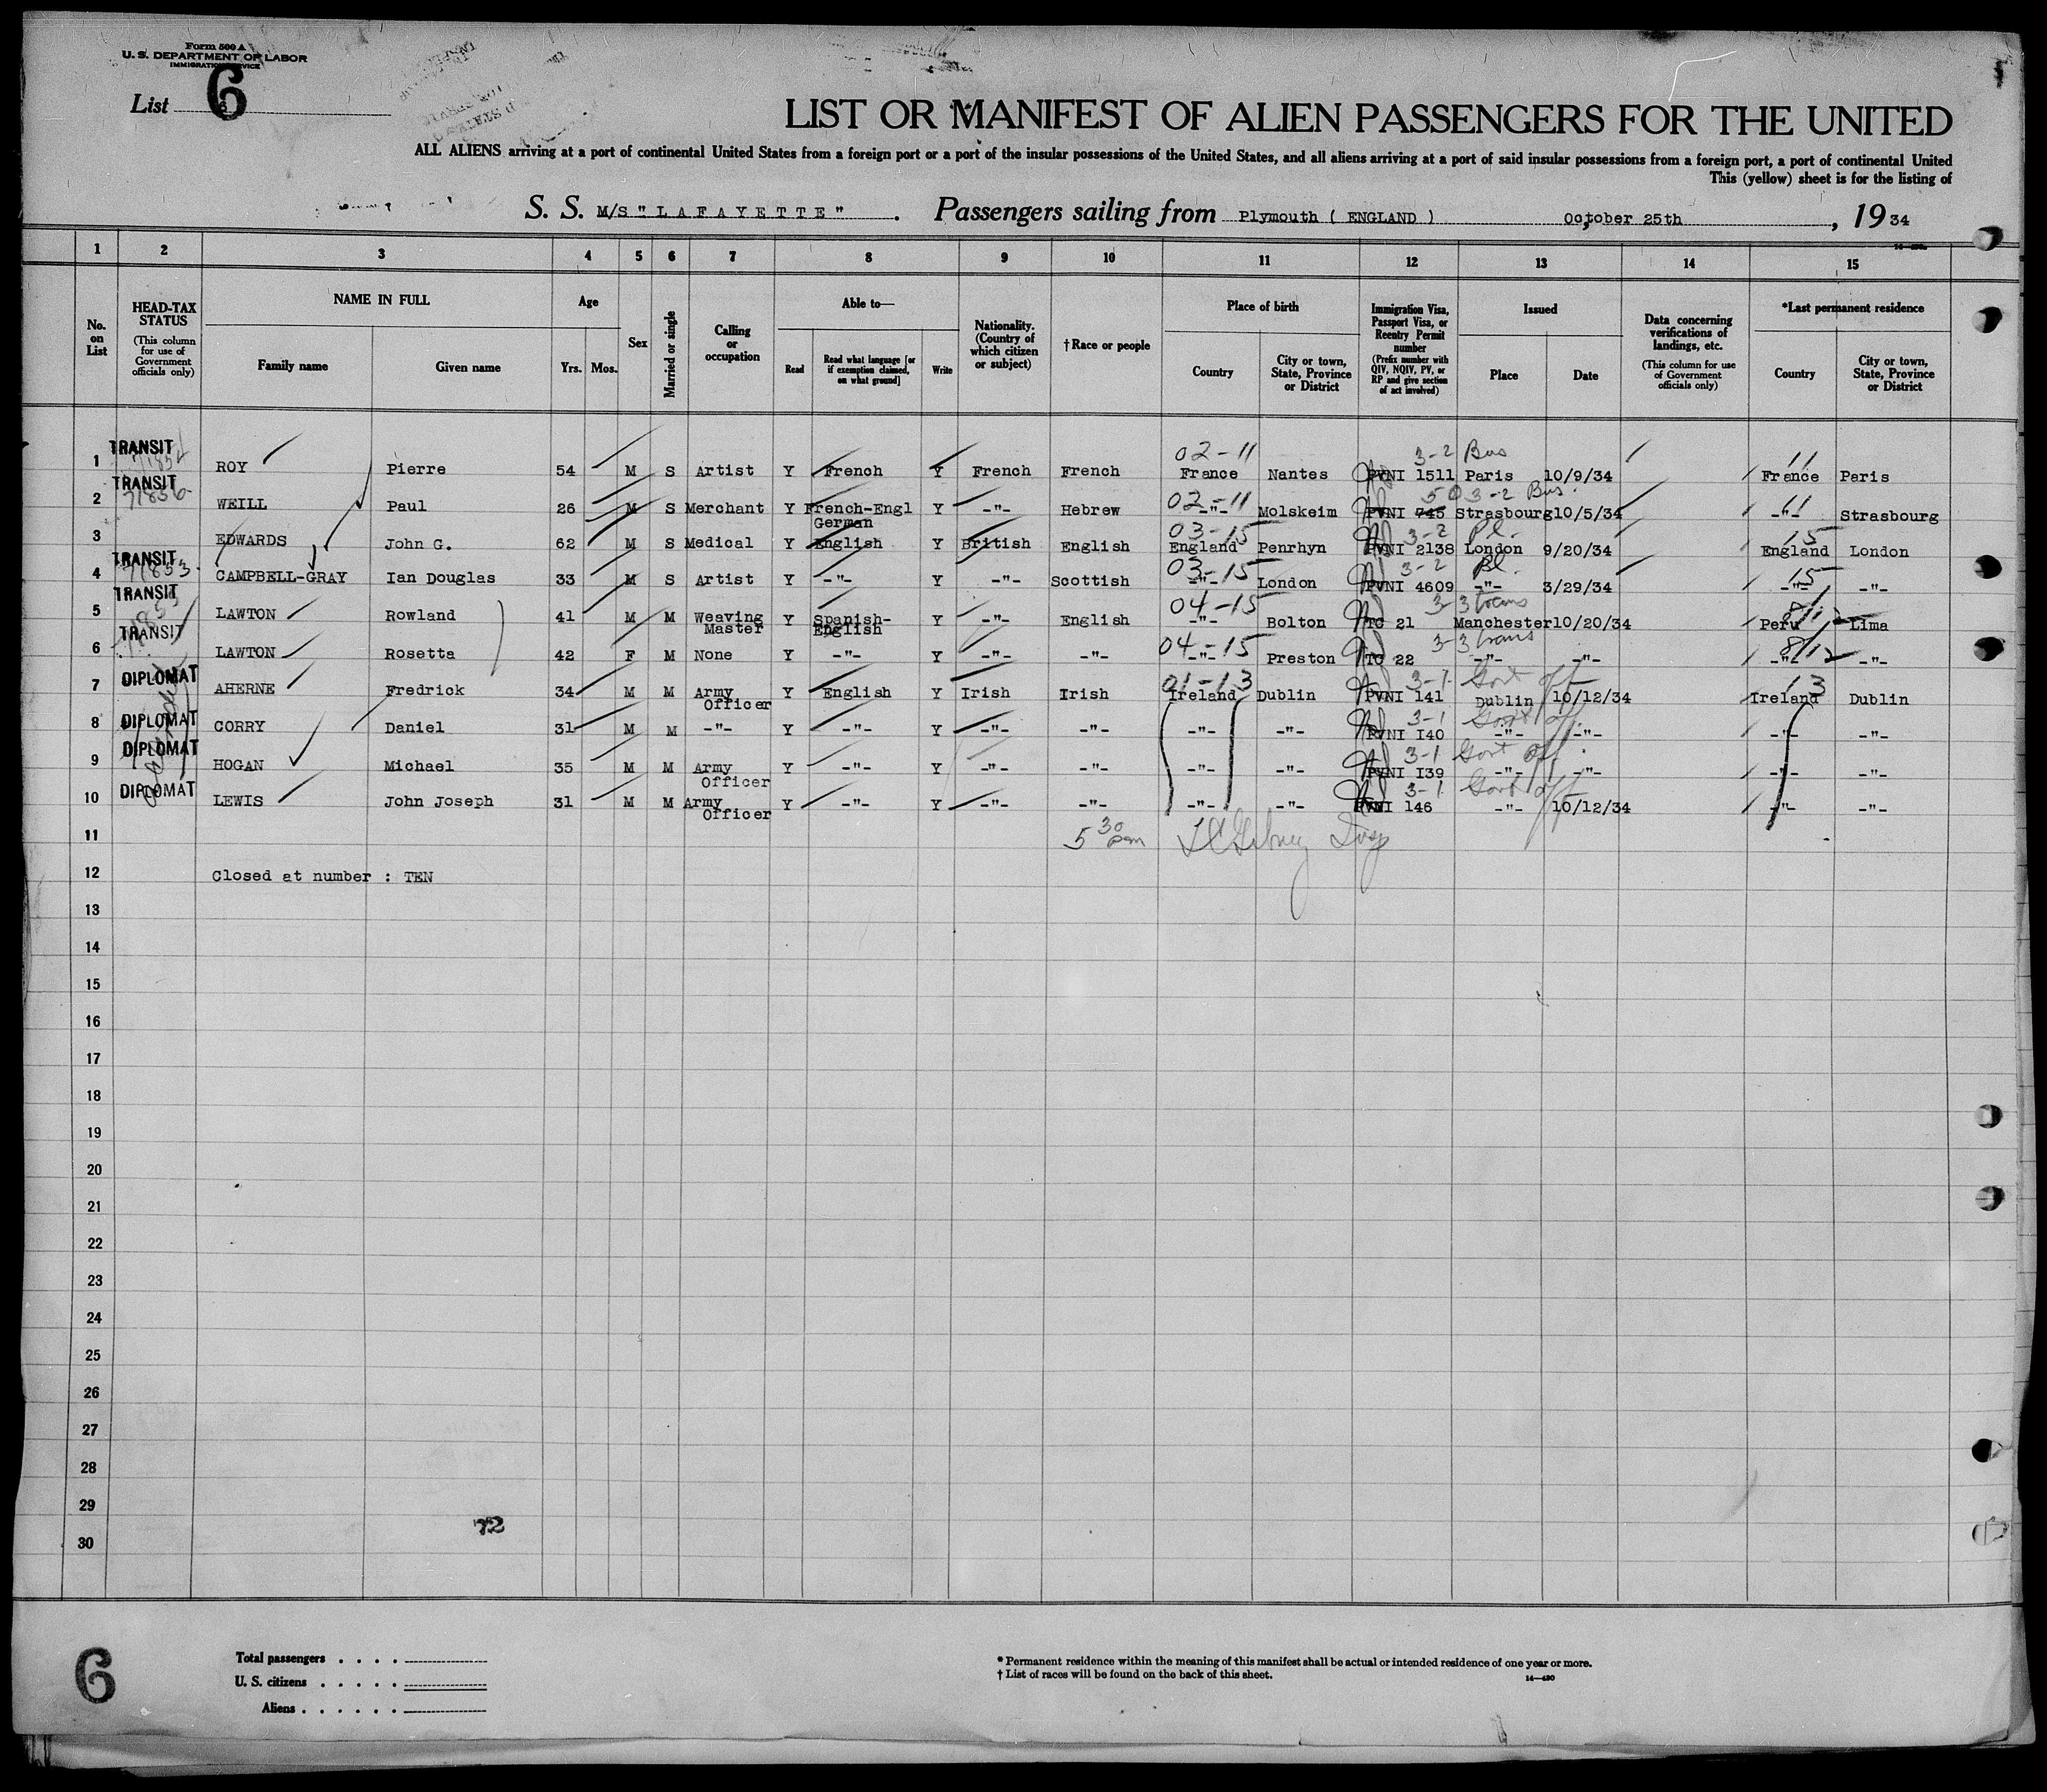 Form 500 A
U. S. DEPARTMENT OF LABOR
IMMIGRATION SERVICE
List 6
LIST OR MANIFEST OF ALIEN PASSENGERS FOR THE UNITED
ALL ALIENS arriving at a port of continental United States from a foreign port or a port of the insular possessions of the United States, and all aliens arriving at a port of said insular possessions from a foreign port, a port of continental United
This (yellow) sheet is for the listing of
S. S. M/S "LAFAYETTE". Passengers sailing from Plymouth ( ENGLAND ) October 25th, 1934
1 2 3 4 5 6 7 8 9 10 11 12 13 14 15
No. on List
HEAD-TAX STATUS
(This column for use of Government officials only)
NAME IN FULL
Family name Given name
Age
Yrs. Mos.
Sex
Married or single
Calling or occupation
Able to—
Read
Read what language [or if exemption claimed, on what ground]
Write
Nationality. (Country of which citizen or subject)
†Race or people
Place of birth
Country
City or town, State, Province or District
Immigration Visa, Passport Visa, or Reentry Permit number
(Prefix number with QIV, NQIV, PV, or RP and give section of act involved)
Issued
Place Date
Data concerning verifications of landings, etc.
(This column for use of Government officials only)
*Last permanent residence
Country
City or town, State, Province or District
TRANSIT 02-11 3-2 Bus 11
1 ROY Pierre 54 M S Artist Y French Y French French France Nantes PVNI 1511 Paris 10/9/34 France Paris
TRANSIT 71856 02-11 50 3-2 Bus. 11
2 WEILL Paul 26 M S Merchant Y French-Engl Y -"- Hebrew -"- Molskeim PVNI 745 Strasbourg 10/5/34 -"- Strasbourg
German
03-15 3-2 Pl. 15
3 EDWARDS John G. 62 M S Medical Y English Y British English England Penrhyn PVNI 2138 London 9/20/34 England London
TRANSIT 71853 03-15 3-2 Pl. 15
4 CAMPBELL-GRAY Ian Douglas 33 M S Artist Y -"- Y -"- Scottish -"- London PVNI 4609 -"- 3/29/34 -"- -"-
TRANSIT 04-15 3-3 trans 8/12
5 LAWTON Rowland 41 M M Weaving Master Y Spanish-English Y -"- English -"- Bolton TC 21 Manchester 10/20/34 Peru Lima
TRANSIT 04-15 3-3 trans 8/12
6 LAWTON Rosetta 42 F M None Y -"- Y -"- -"- -"- Preston TC 22 -"- -"- -"- -"-
DIPLOMAT 01-13 3-1 Govt off 13
7 AHERNE Fredrick 34 M M Army Officer Y English Y Irish Irish Ireland Dublin PVNI 141 Dublin 10/12/34 Ireland Dublin
DIPLOMAT 3-1 Govt off.
8 CORRY Daniel 31 M M -"- Y -"- Y -"- -"- -"- -"- PVNI I40 -"- -"- -"- -"-
DIPLOMAT 3-1 Govt off.
9 HOGAN Michael 35 M M Army Officer Y -"- Y -"- -"- -"- -"- PVNI I39 -"- -"- -"- -"-
DIPLOMAT 3-1 Govt off
10 LEWIS John Joseph 31 M M Army Officer Y -"- Y -"- -"- -"- -"- PVNI 146 -"- 10/12/34 -"- -"-
11 5 30 pm
12 Closed at number : TEN
13
14
15
16
17
18
19
20
21
22
23
24
25
26
27
28
29
72
30
6
Total passengers . . . .
U. S. citizens . . . . .
Aliens . . . . . .
* Permanent residence within the meaning of this manifest shall be actual or intended residence of one year or more.
† List of races will be found on the back of this sheet.
14—430